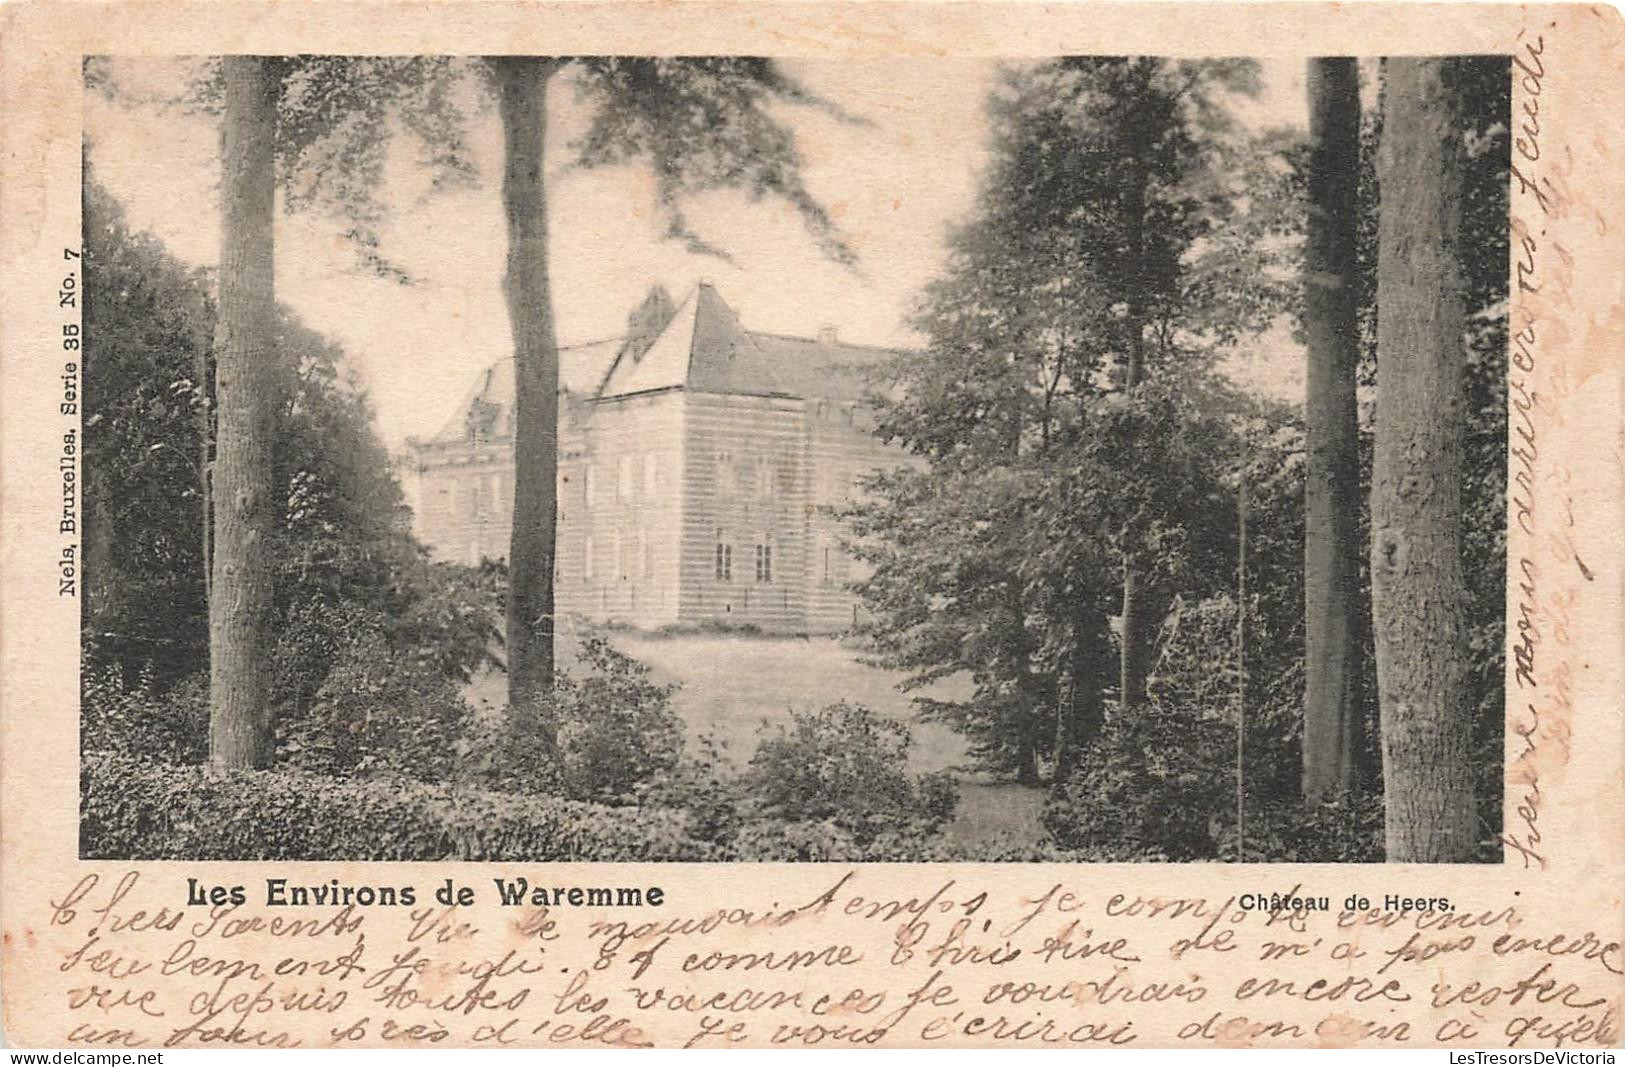 Nels, Bruxelles. Serie 35 No. 7
Les Environs de Waremme
Château de Heers.
Chers Parents, Vu le mauvais temps, je compte revenir
seulement Jeudi. Et comme Christine ne m'a pas encore
vue depuis toutes les vacances je voudrais encore rester
un jour près d'elle je vous écrirai demain à quelle
heure nous arriverons Jeudi.
LesTresorsDeVictoria